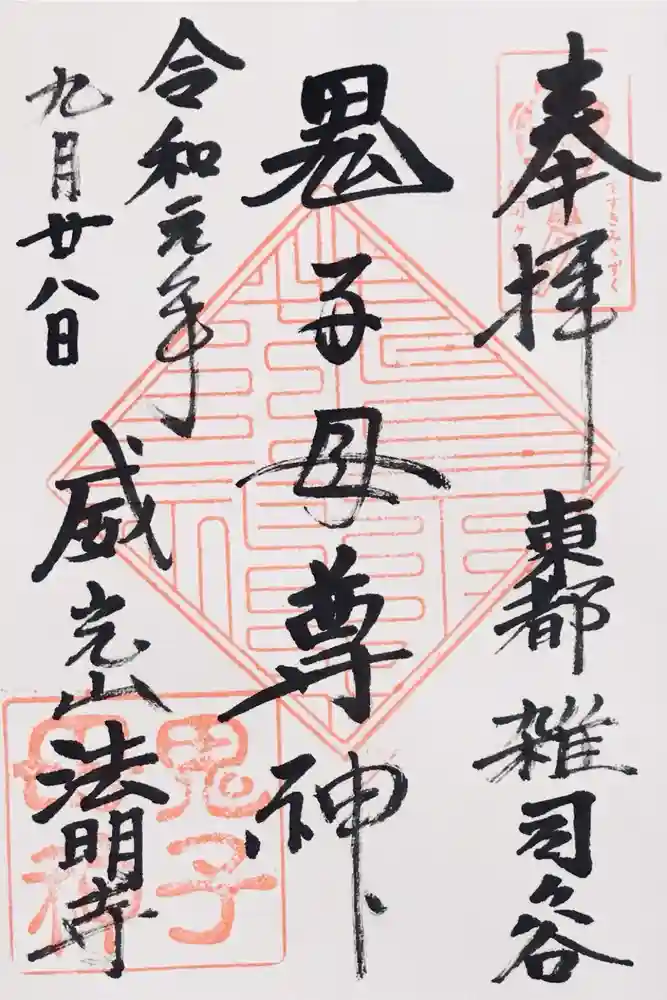 奉拝
東都 雑司ヶ谷
鬼子母尊神
令和元年
九月廿八日
威光山 法明寺
すすきみゝずく
鬼子
母神